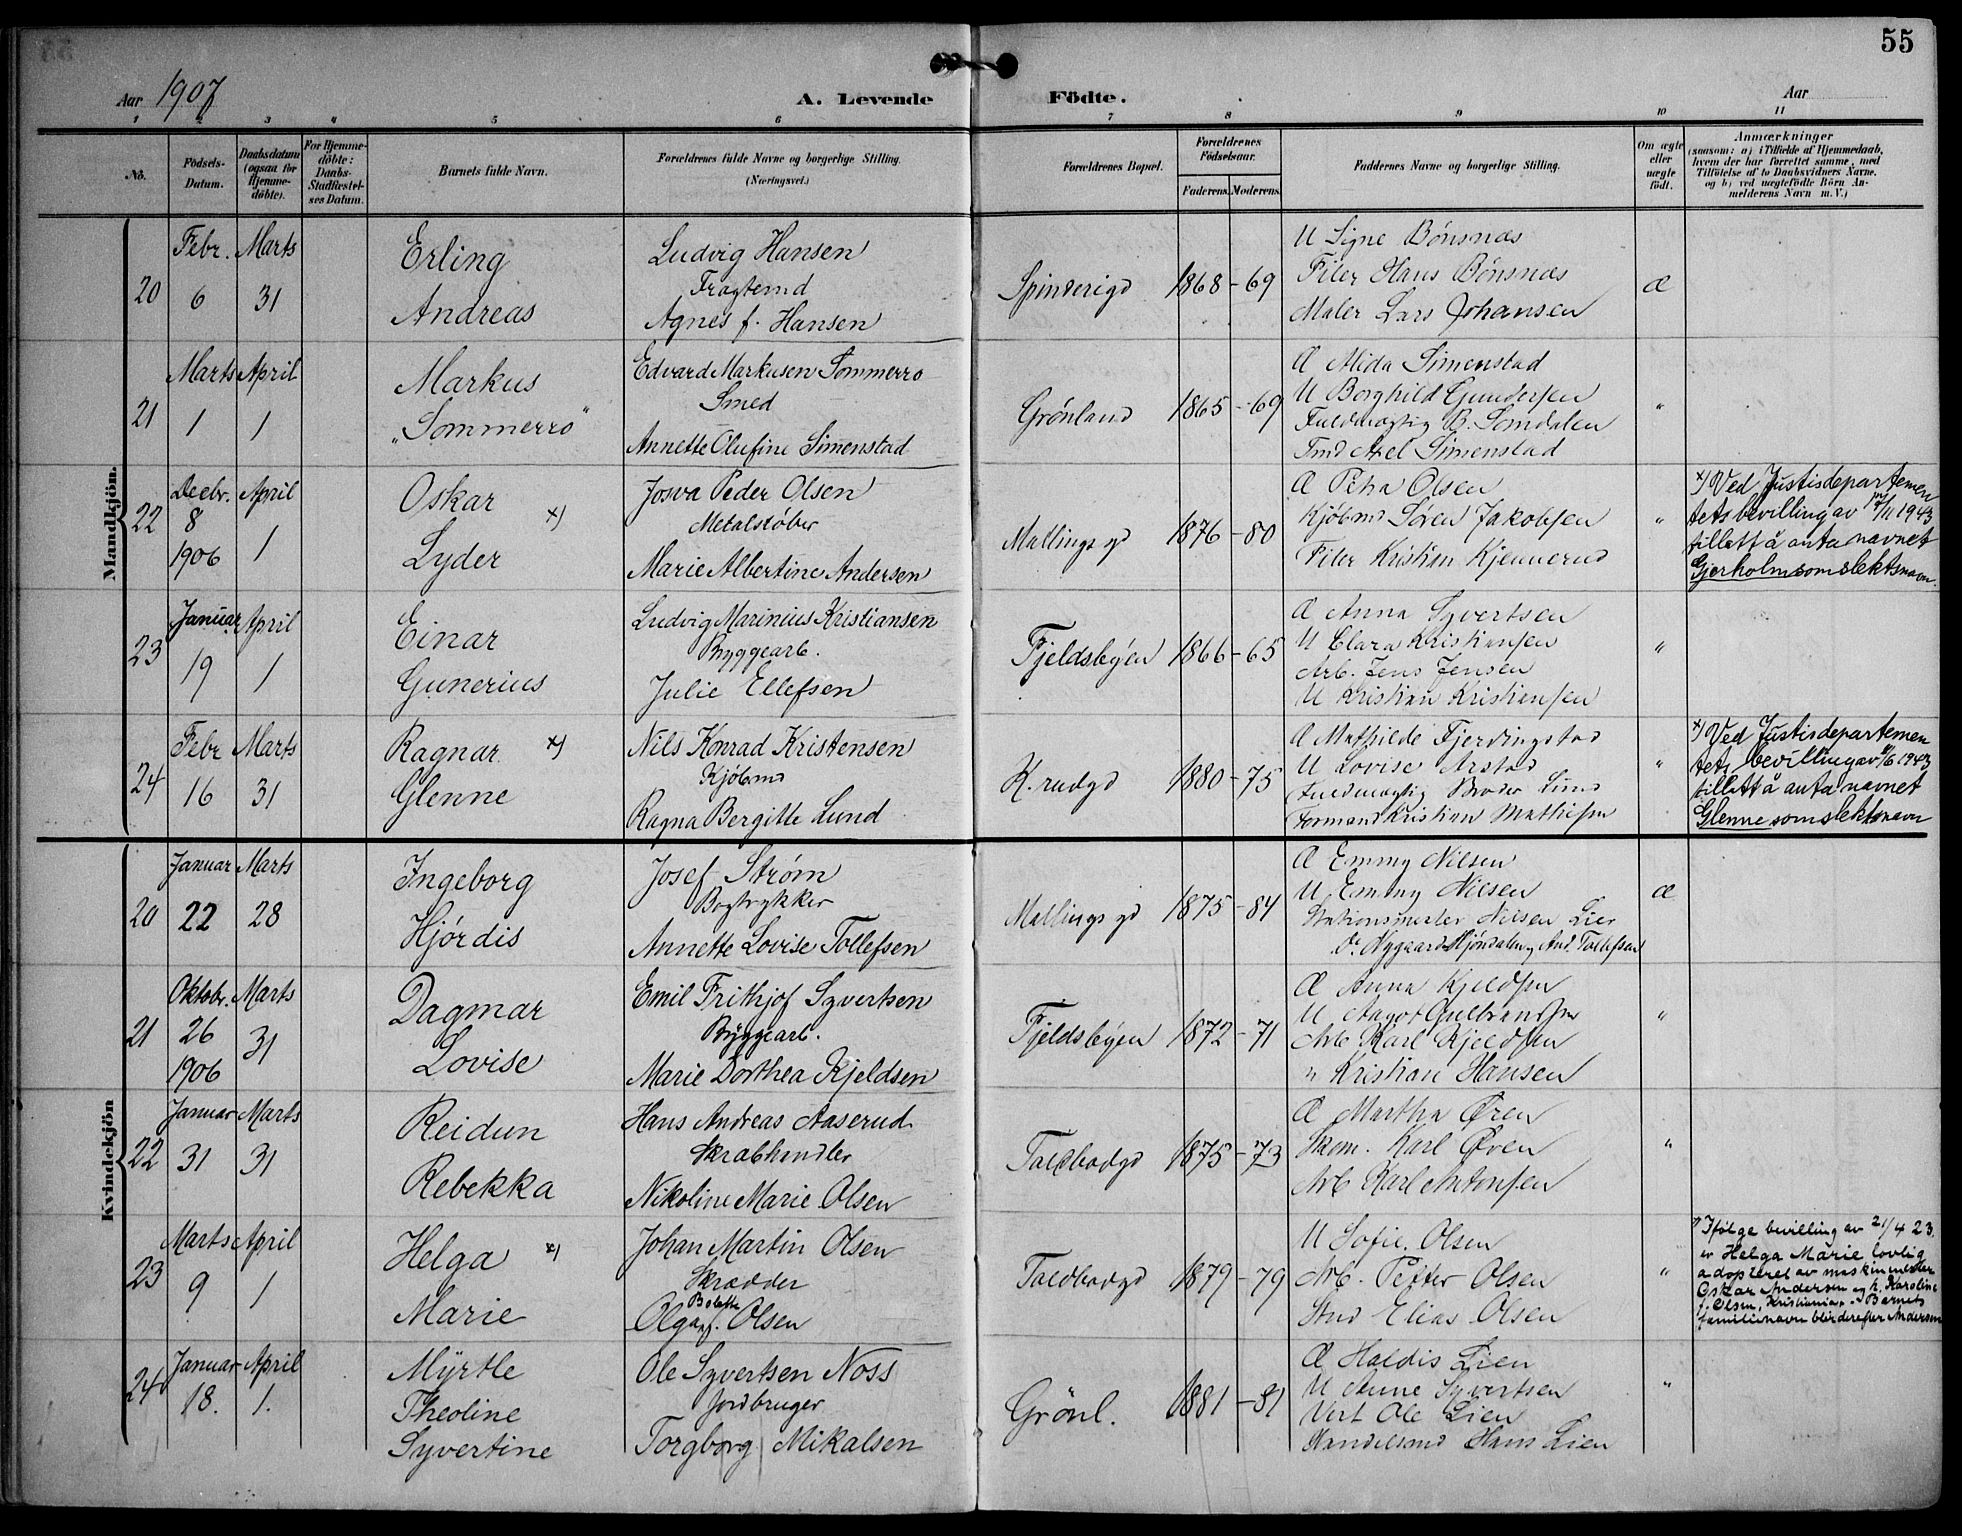 55
Aar 1907
A. Levende Födte.
Aar
1 2 3 4 5 6 7 8 9 10 11
No.
Födsels-Datum.
Daabsdatum (ogsaa for Hjemme-döbte).
For Hjemme-döbte: Daabs-Stadfæstel-ses Datum.
Barnets fulde Navn.
Forældrenes fulde Navne og borgerlige Stilling.
(Næringsvei.)
Forældrenes Bopæl.
Forældrenes Födselsaar.
Faderens. Moderens.
Faddernes Navne og borgerlige Stilling.
Om ægte eller uægte födt.
Anmærkninger
(saasom: a) i Tilfælde af Hjemmedaab,
hvem der har forrettet samme, med
Tilföielse af to Daabsvidners Navne.
og b) ved uægtefödte Börn An-
melderens Navn m. V.)
Mandkjön.
20
Febr. 6
Marts 31
Erling
Andreas
Ludvig Hansen
Fragtemd
Agnes f. Hansen
Spinderigd
1868 - 69
U Signe Bönsnæs
Filer Hans Bönsnæs
Maler Lars Johansen
æ
21
Marts 1
April 1
Markus
"Sommerro"
Edvard Markusen Sommerro
Smed
Annette Olufine Simenstad
Grönland
1865 - 69
Æ Alida Simenstad
U Borghild Gundersen
Fuldmægtig B. Somdalen
Tmd Axel Simenstad
"
22
Decbr. 8 1906
April 1
Oskar x)
Lyder
Josva Peder Olsen
Metalstöber
Marie Albertine Andersen
Mallings gd
1876 - 80
Æ Petra Olsen
Kjöbmd Sören Jakobsen
Filer Kristian Kjennerud
"
x) Ved Justisdepartemen
tets bevilling av 1943
tillatt å anta navnet
Gjerholm som slektsnavn.
23
Januar 19
April 1
Einar
Gunerius
Ludvig Marinius Kristiansen
Byggearb.
Julie Ellefsen
Fjeldsbyen
1866 - 65
Æ Anna Syvertsen
U Clara Kristiansen
Arb. Jens Jensen
U Kristian Kristiansen
"
24
Febr 16
Marts 31
Ragnar x)
Glenne
Nils Konrad Kristensen
Kjöbmd
Ragna Bergitte Lund
K.rudgd
1880 - 75
Æ Mathilde Fjerdingstad
U Lovise Arstad
Fuldmægtig Lund
Formand Kristian Mathisen
"
x) Ved Justisdepartemen
tets bevilling av 1943
tillatt å anta navnet
Glenne som slektsnavn
Kvindekjön
20
Januar 22
Marts 28
Ingeborg
Hjördis
Josef Ström
Bogtrykker
Annette Lovise Tollefsen
Mallings gd
1875 - 84
Æ Emmy Nilsen
U Emmy Nilsen
Stationsmester Nielsen Lier
Nygaard Mjöndalen And. Tollefsen
æ
21
Oktobr. 26 1906
Marts 31
Dagmar
Lovise
Emil Frithjof Syvertsen
Byggearb.
Marie Dorthea Kjeldsen
Fjeldsbyen
1872 - 71
Æ Anna Kjeldsen
U Aagot Gulbrandsen
Arb Karl Kjeldsen
" Kristian Hansen
"
22
Januar 31
Marts 31
Reidun
Rebekka
Hans Andreas Aaserud
Skrabhandler
Nikoline Marie Olsen
Toldbodgd
1875 - 73
Æ Martha Ören
Skom. Karl Ören
Arb Karl Antonsen
"
23
Marts 9
April 1
Helga x)
Marie
Johan Martin Olsen
Skrædder
Bolette
Olga f. Olsen
Toldbodgd
1879 - 79
U Sofie Olsen
Arb. Petter Olsen
Stud Elias Olsen
"
x) Ifølge bevilling av 21/4 23.
er Helga Marie lovlig
adopteret av maskinmester
Oskar Andersen og h. Karoline
f. Olsen, Kristiania. - Barnets
familienavn blir derefter Andersen
24
Januar 18.
April 1.
Myrtle
Theoline
Syvertine
Ole Syvertsen Noss
Jordbruger
Torgborg Mikalsen
Grönl.
1881 - 81
Æ Haldis Lien
U Anne Syvertsen
Vert Ole Lien
Handelsmd Hans Lien
"